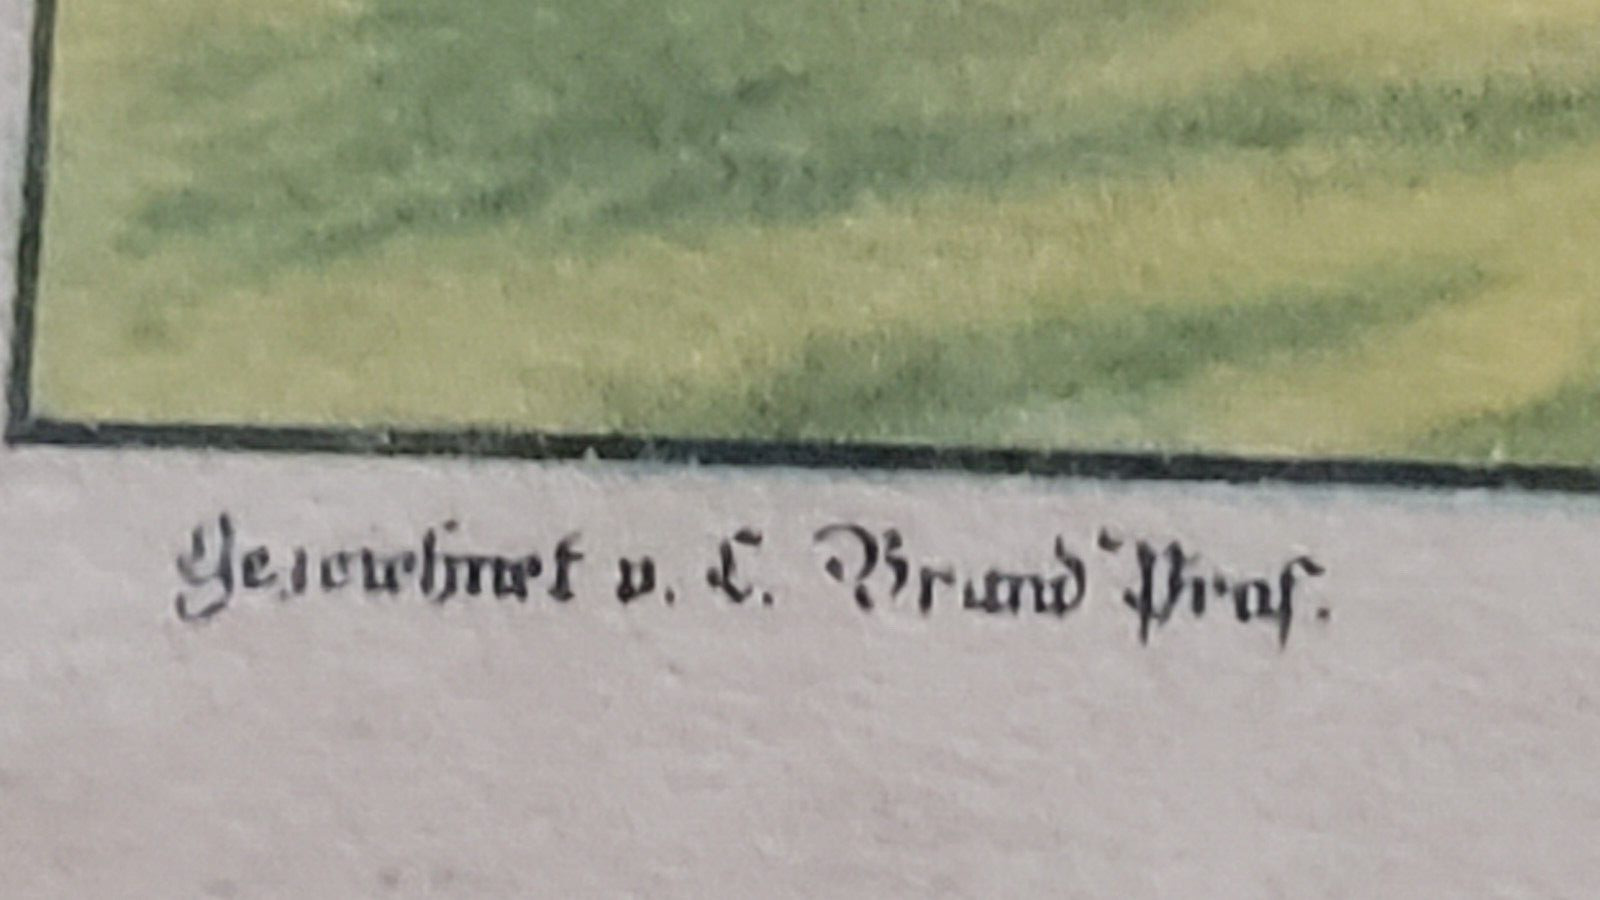 Gezeichnet v. C. Brand Prof.